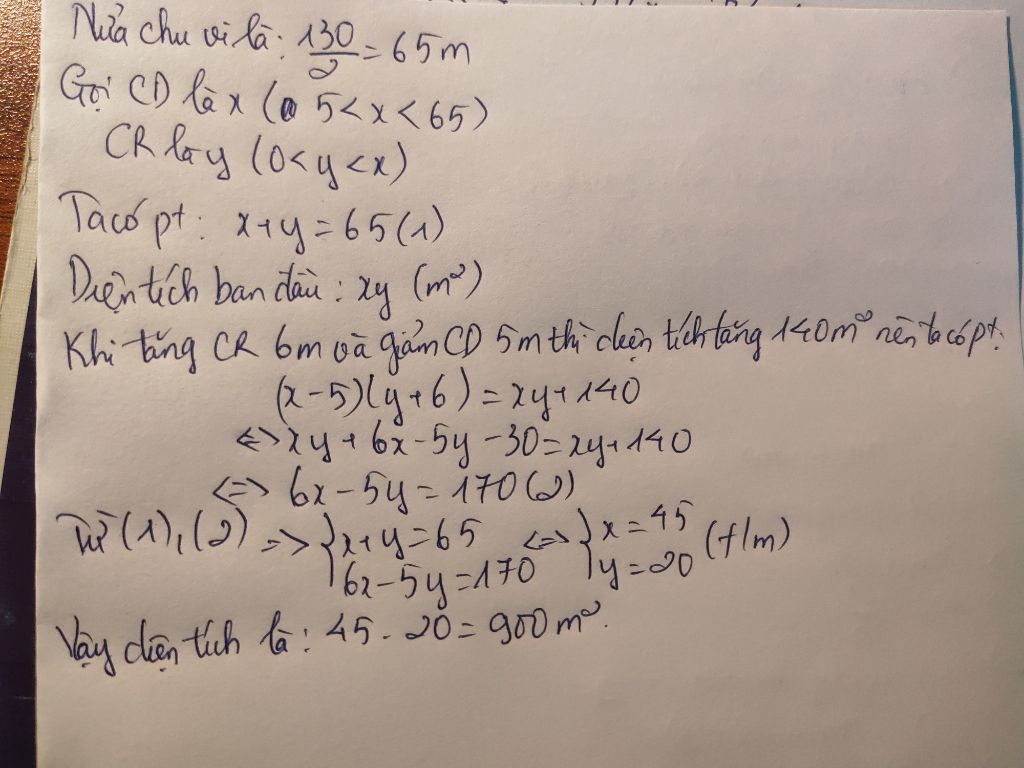 Nửa chu vi là: 130/2 = 65m
Gọi CD là x (5<x<65)
CR là y (0<y<x)
Ta có pt: x+y=65(1)
Diện tích ban đầu: xy (m²)
Khi tăng CR 6m và giảm CD 5m thì diện tích tăng 140m² nên ta có pt:
(x-5)(y+6)=xy+140
<=> xy+6x-5y-30=xy+140
<=> 6x-5y=170(2)
Từ (1),(2) => { x+y=65 <=> { x=45 (t/m)
6x-5y=170 y=20
Vậy diện tích là: 45.20=900m².